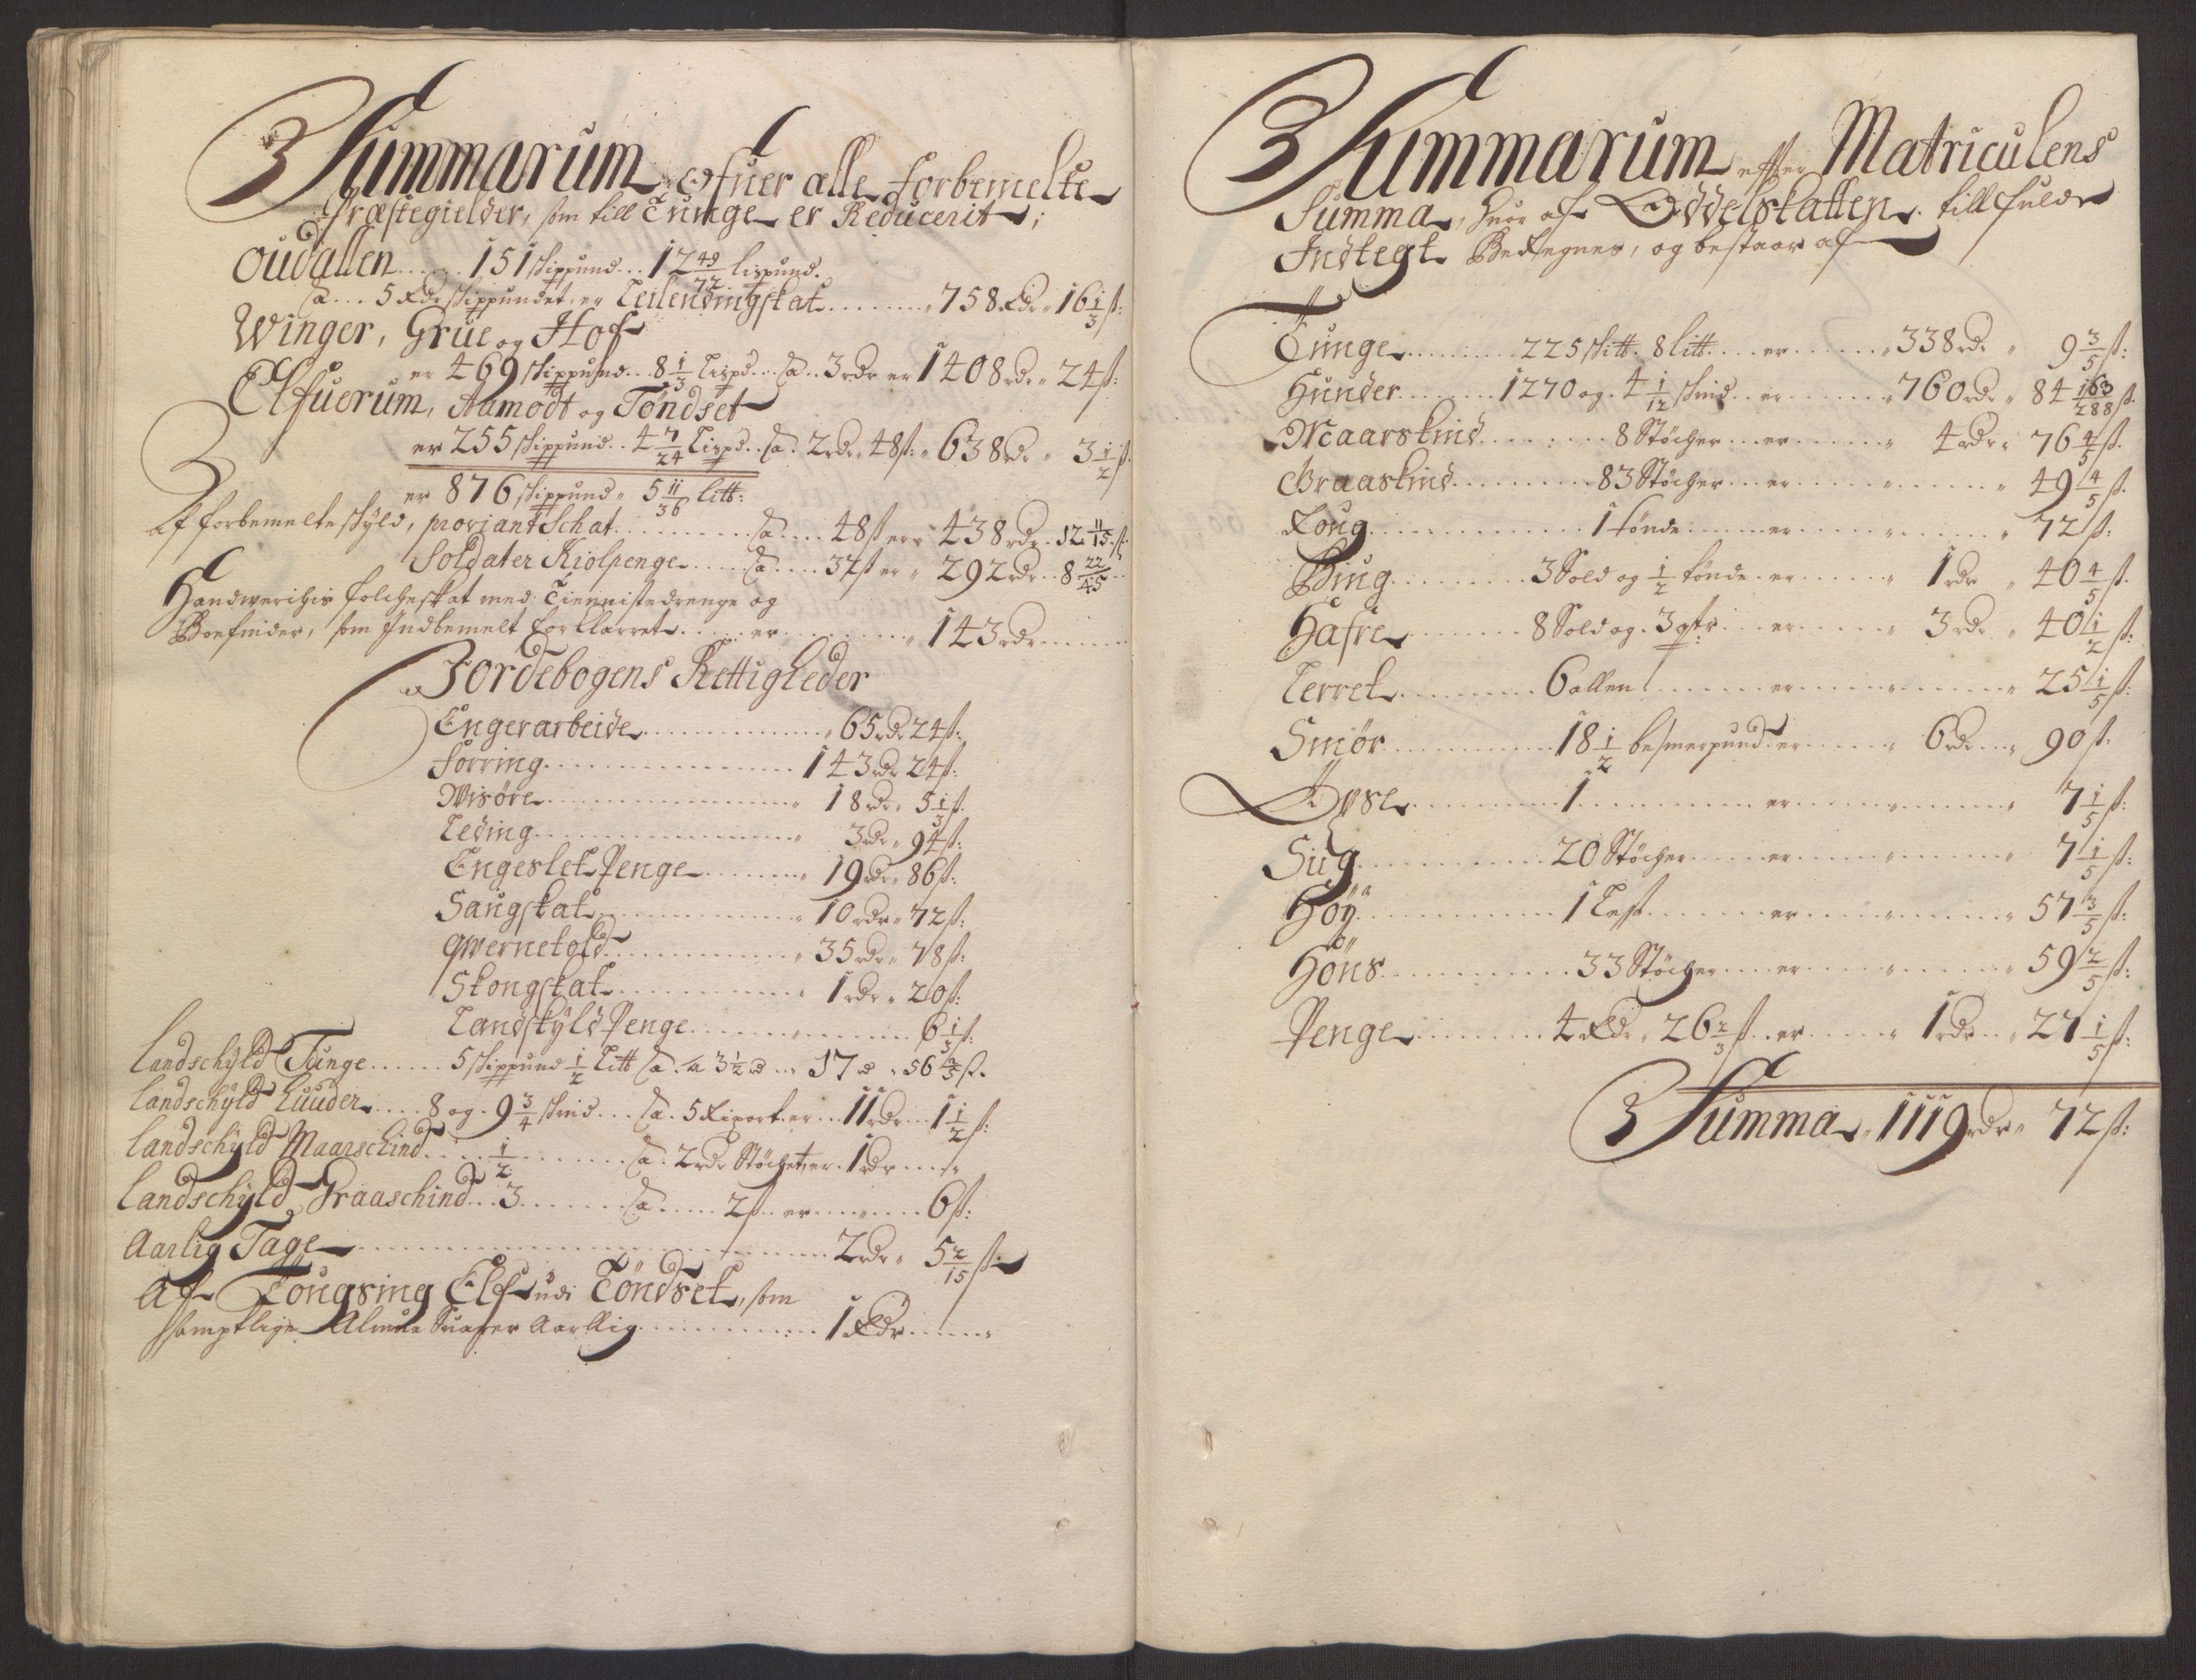 Summarum Ofuer alle forbemelte
Præstegielder, som till Tunge er Reducerit;
Oudallen ...... 151 skippund .. 12 49/72 lispund.
a ... 5 Rdr skippundet er Leilendingskat ........ 758 Rdr 16 1/3 ß:
Winger, Grue og Hof
er 469 skippund .. 8 1/3 Lispd .. a .. 3 rdr er 1408 rdr 24 ß:
Elfuerum, Aamodt og Töndset
er 255 skippund .. 4 7/24 Lispd .. a . 2 rdr 48 ß: 638 rdr 3 1/2 ß
er 876 skippund 5 11/36 litt:
Af forbemelte skyld, proviant Schat ........ a .... 48 ß er 438 rdr 12 11/15 ß
Soldater Kiolpenge ..... a .... 32 ß er 292 rdr .. 8 22/45 ..
Handwerchis folcheskat med Tiennistedrenge og
som Indbemelt forklarret ..... er ........ 143 rdr ......
Jordebogens Rettigheder
Engerarbeide .............. 65 rdr 24 ß:
Forring .............. 143 rdr 24 ß:
Wisöre .............. 18 rdr 5 1/3 ß
Leding .............. 3 rdr 94 ß:
Engeslet Penge ........ 19 rdr 86 ß:
Saugskat .............. 10 rdr 72 ß:
Qwernetold .............. 35 rdr 78 ß:
Skongskat .............. 1 rdr 20 ß:
Landskyld Penge .............. 6 1/3 ß:
Landschyld Tunge ...... 5 skippund 1/2 Litt a 3 1/2 rd ... 17 rd 56 4/5 ß.
Landschyld Huuder .... 8 og 9 3/4 skind ... a . 5 er .. 11 rdr ... 1 1/2 ß:
Landschyld Maarschind .... 1/2 ....... a . 2 rdr Stöchet er . 1 rdr ....
Landschyld Graaschind .. 3 ...... a .... 2 ß .. er ....... 6 ß:
Aarlig Tage .............................. 2 rdr 5 2/15 ß
Af Tougsing Elf udi Töndset, som
samptlige Almue Suarer Aarllig ............ 1 Rdr ......
Summarum efter Matriculens
Summa, huor af Oddelskatten till fulde
Indtegt Beregnes, og bestaar af
Tunge ......... 225 skitt . 8 litt .... er ...... 338 rdr 9 3/5 ß:
Hunder ......... 1270 og . 4 1/12 skind .. er ...... 760 rdr 84 163/288 ß.
Maarskind ........ 8 Stöcher ... er ...... 4 rdr 76 4/5 ß.
Graaskind ......... 83 Stöcher ... er ............ 49 4/5 ß.
Roug ............... 1 tönde ...... er ............ 72 ß:
Biug ......... 3 Sold og 1/2 tönde . er ...... 1 rdr 40 4/5 ß.
Hafre ......... 8 Sold og . 3 qtr: ... er ...... 3 rdr 40 1/2 ß:
Lerret ......... 6 allen ......... er ............ 25 1/5 ß:
Smör ............ 18 1/2 besmerpund . er ...... 6 rdr .... 90 ß:
Oxse ............ 1 ............ er ............ 7 1/5 ß:
Siug ............ 20 Stöcher ...... er ............ 7 1/5 ß:
Höy ............ 1 Lest ......... er ............ 57 3/5 ß:
Höns ............ 33 Stöcher .... er ............ 59 2/5 ß:
Penge ......... 4 Rdr 26 2/3 ß .. er ...... 1 rdr .... 27 1/5 ß:
Summa 1119 rdr 72 ß: